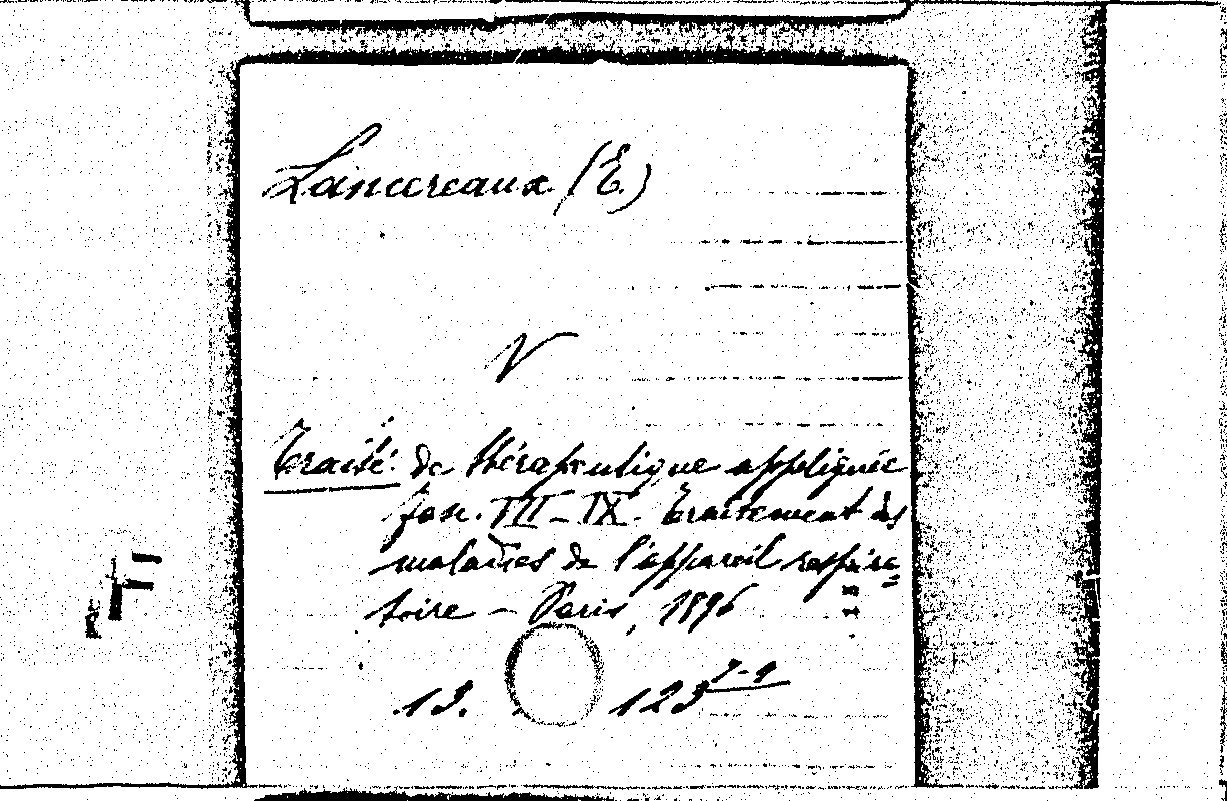 Lancereaux (E.)
V
Traité de thérapeutique appliquée
fasc. VII–IX. Traitement des
maladies de l'appareil respira=
toire – Paris, 1896
13. 123 7-9
F